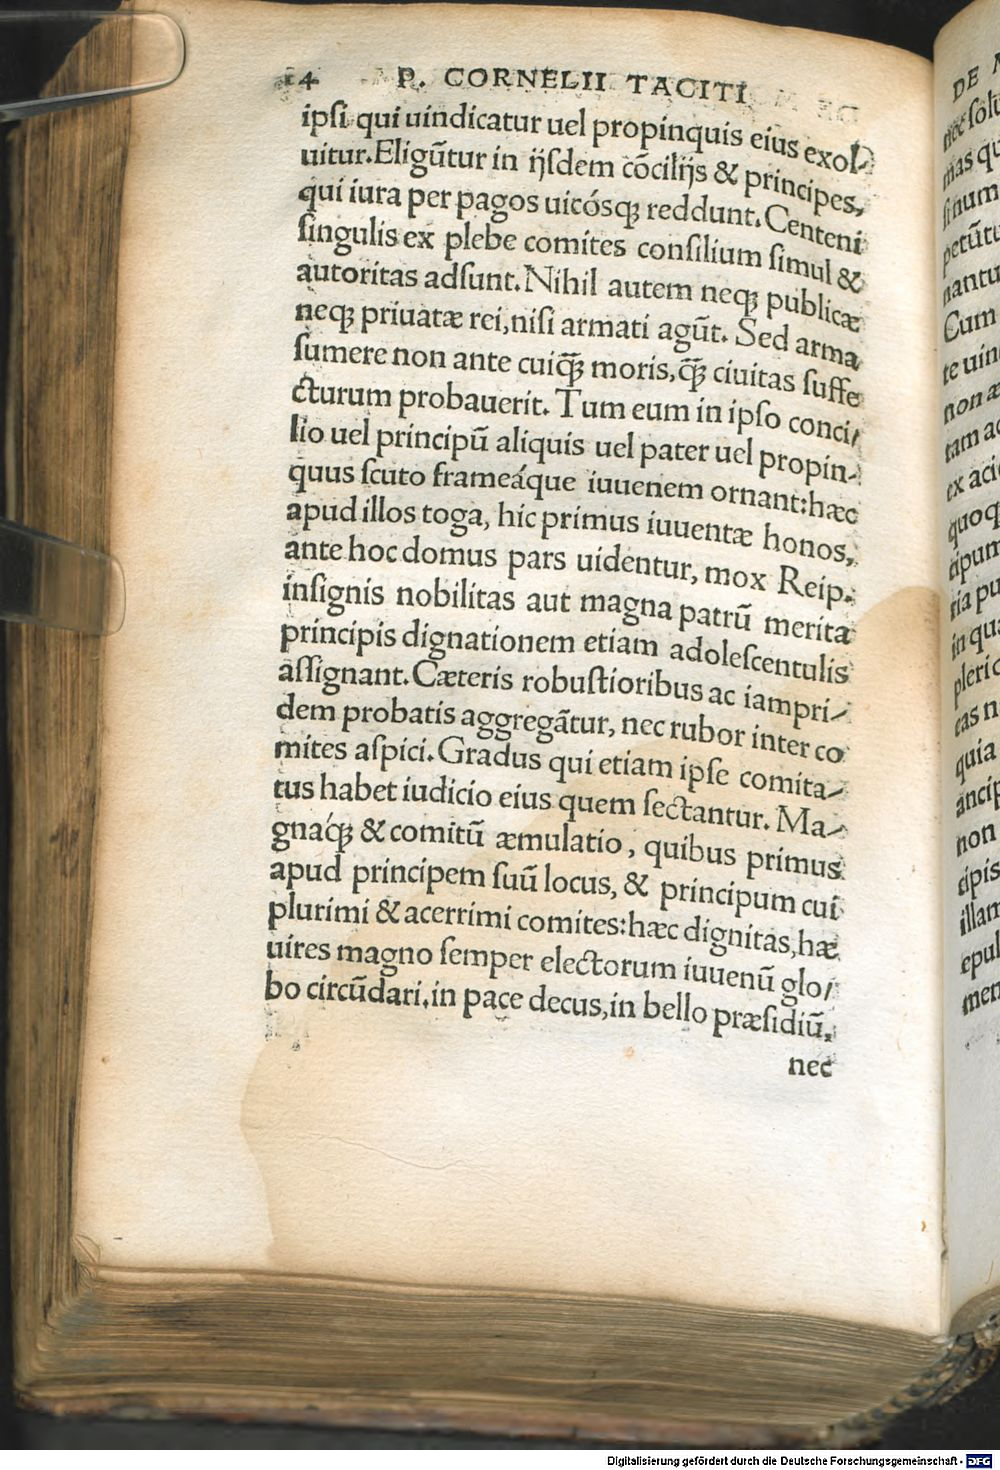 14 P. CORNELII TACITI
ipſi qui uindicatur uel propinquis eius exol-
uitur. Eligũtur in ijſdem cõcilijs & principes,
qui iura per pagos uicósqꝫ reddunt. Centeni
ſingulis ex plebe comites conſilium ſimul &
autoritas adſunt. Nihil autem neqꝫ publicæ
neqꝫ priuatæ rei, niſi armati agũt. Sed arma
ſumere non ante cuiq̃ꝫ moris, q̃ꝫ ciuitas ſuffe
cturum probauerit. Tum eum in ipſo conci/
lio uel principũ aliquis uel pater uel propin-
quus ſcuto frameáque iuuenem ornant: hæc
apud illos toga, hic primus iuuentæ honos,
ante hoc domus pars uidentur, mox Reip.
inſignis nobilitas aut magna patrũ merita
principis dignationem etiam adoleſcentulis
aſſignant. Cæteris robuſtioribus ac iampri-
dem probatis aggregãtur, nec rubor inter co
mites aſpici. Gradus qui etiam ipſe comita-
tus habet iudicio eius quem ſectantur. Ma-
gnáqꝫ & comitũ æmulatio, quibus primus
apud principem ſuũ locus, & principum cui
plurimi & acerrimi comites: hæc dignitas, hæ
uires magno ſemper electorum iuuenũ glo/
bo circũdari, in pace decus, in bello præſidiũ,
nec
DE
nec ſolu
mas qu
ſi num
petũtu
nantu
Cum
te uin
non æ
tam ac
ex acie
quoq
cipum
ria pu
in qua
pleric
eas n
quia
ancip
non
cipis
illam
epul
mer
Digitalisierung gefördert durch die Deutsche Forschungsgemeinschaft - DFG